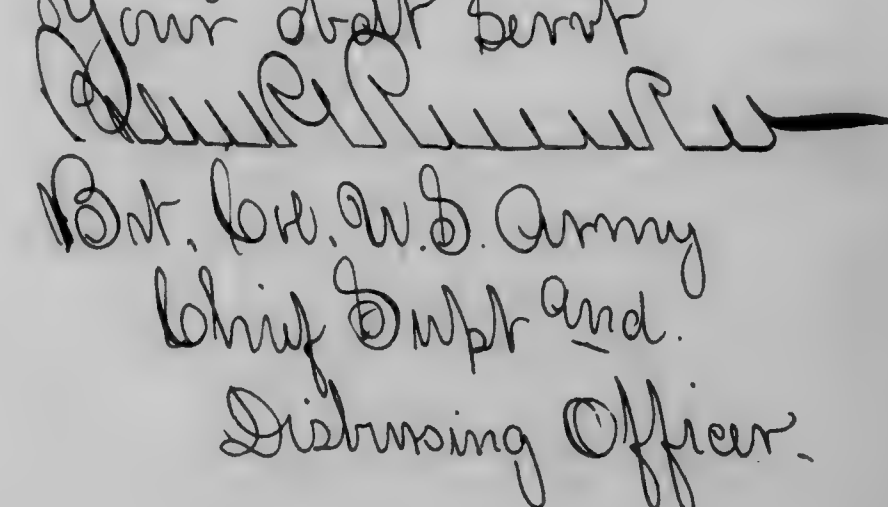 Your obdt Servt
Bvt. Col. U.S. Army
Chief Supt and.
Disbursing Officer.